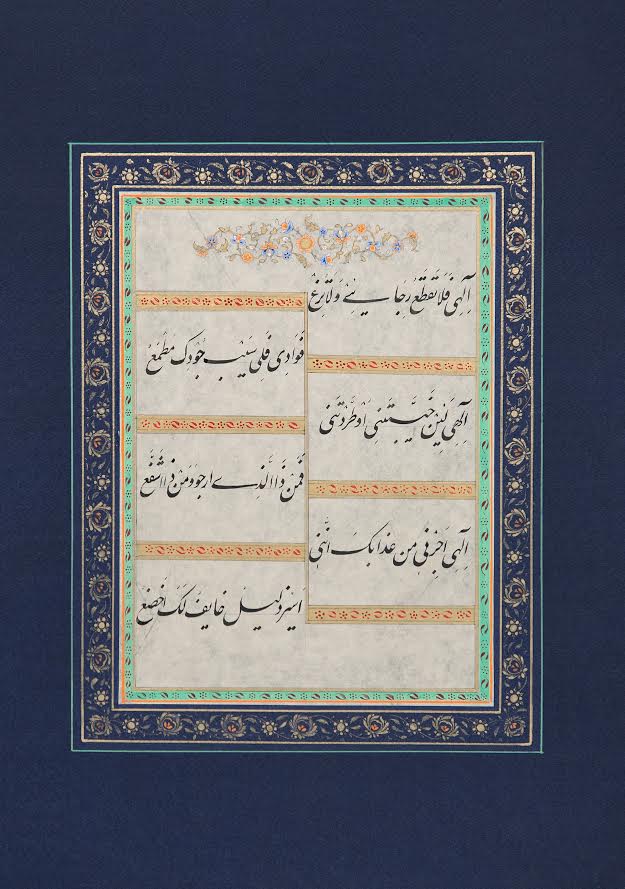 اِلٰهِی فَلا تَقطَع رَجایی وَلا تُزِغ
فُوادِی فَلِی فِی سَیبِ جُودِکَ مَطمَعُ
اِلٰهِی لَئِن خَیَّبتَنِی اَو طَرَدتَنِی
فَمَن ذَا الَّذِی اَرجُو وَمَن ذَا اُشَفِّعُ
اِلٰهِی اَجِرنِی مِن عَذابِکَ اِنَّنِی
اَسِیرٌ ذَلِیلٌ خایِفٌ لَکَ اَخضَعُ